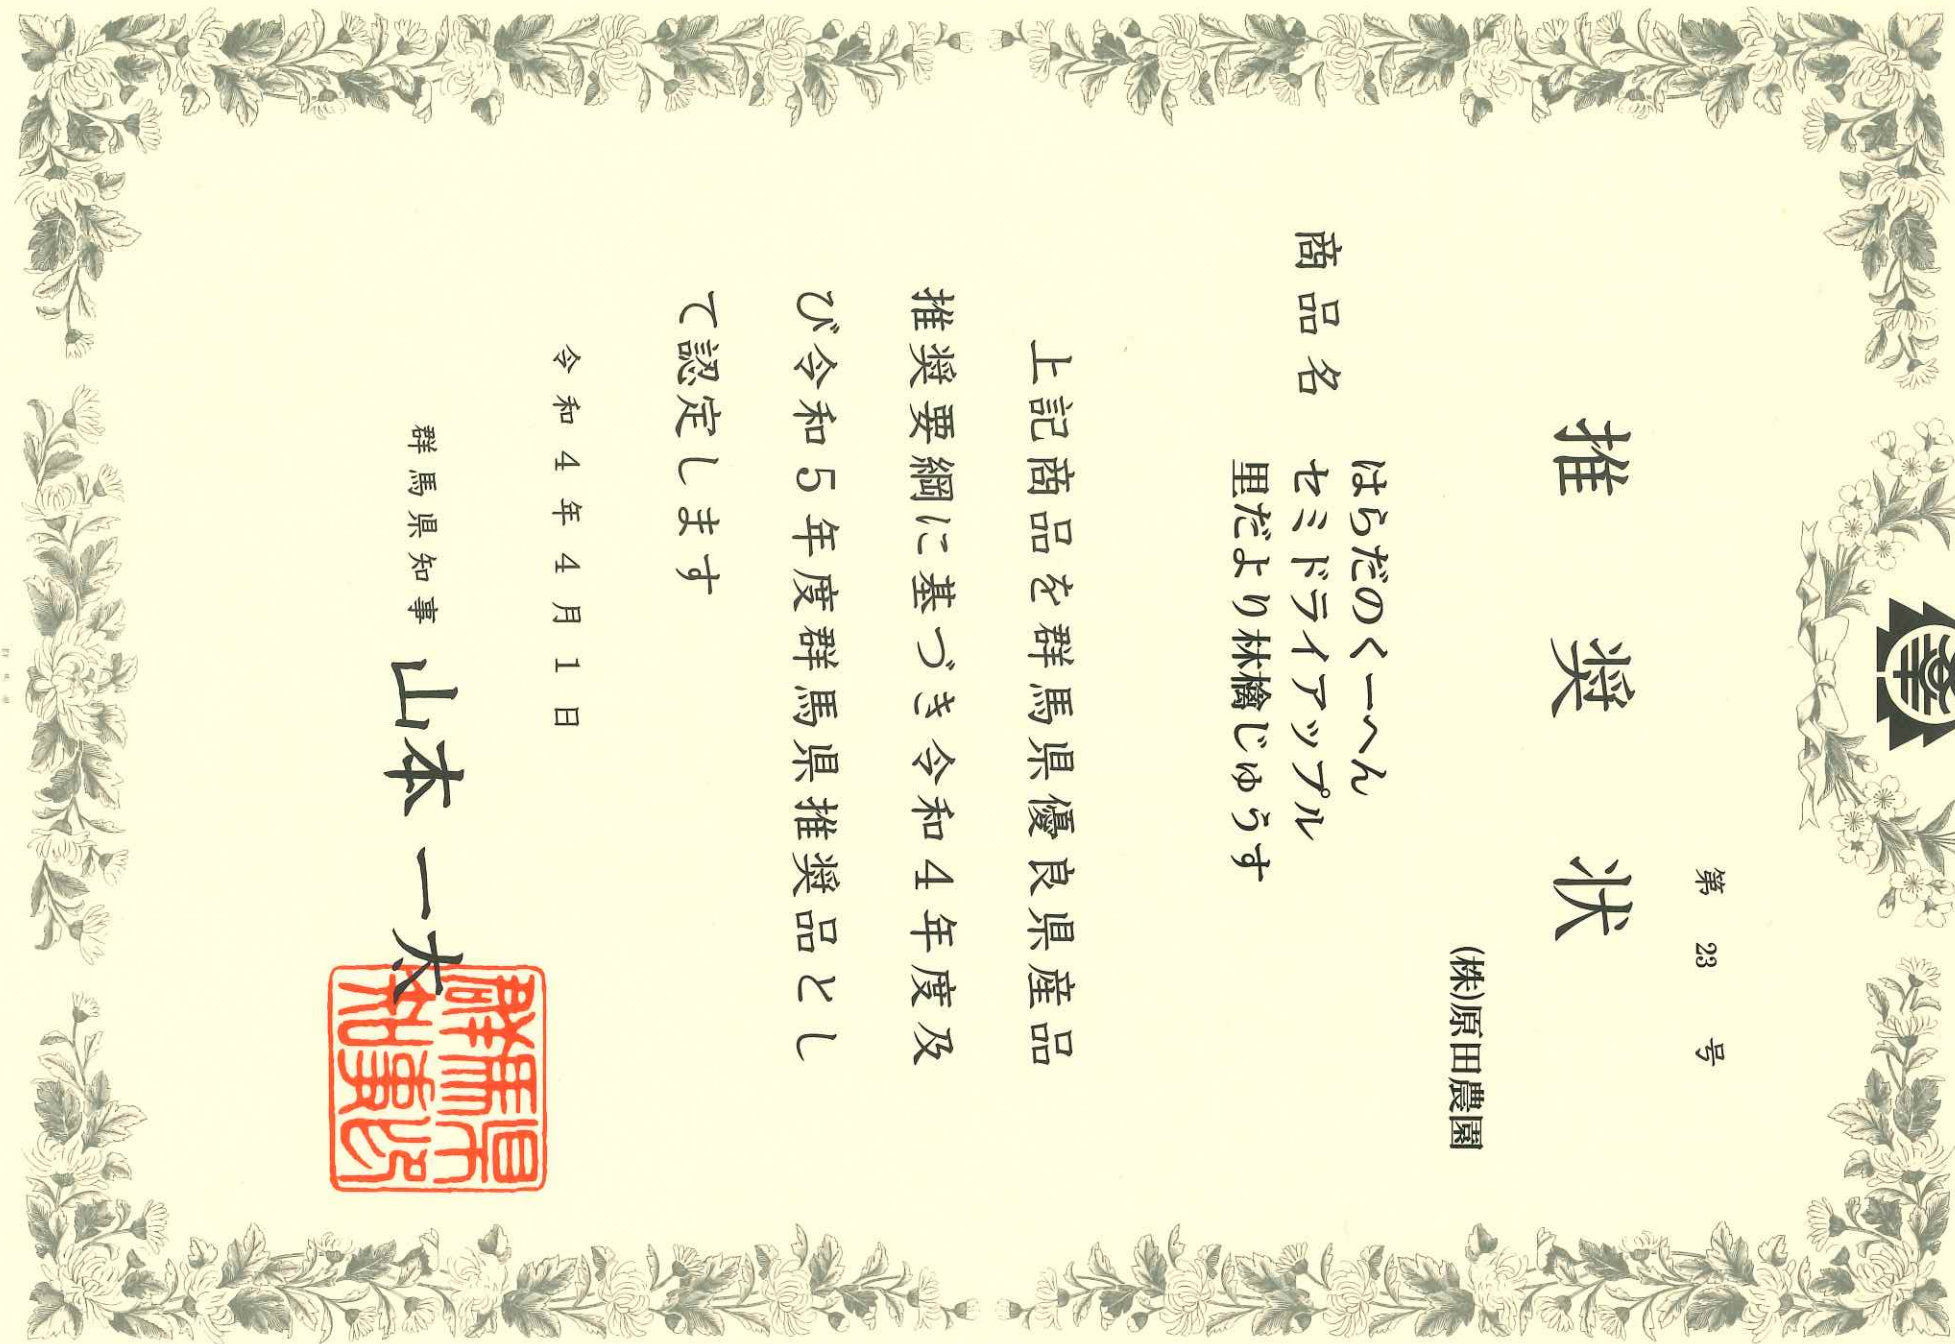 第 23 号
推奨状
(株)原田農園
商品名 はらだのくーへん
セミドライアップル
里だより林檎じゅうす
上記商品を群馬県優良県産品
推奨要綱に基づき令和4年度及
び令和5年度群馬県推奨品とし
て認定します
令和4年4月1日
群馬県知事 山本一太
群馬県知事印